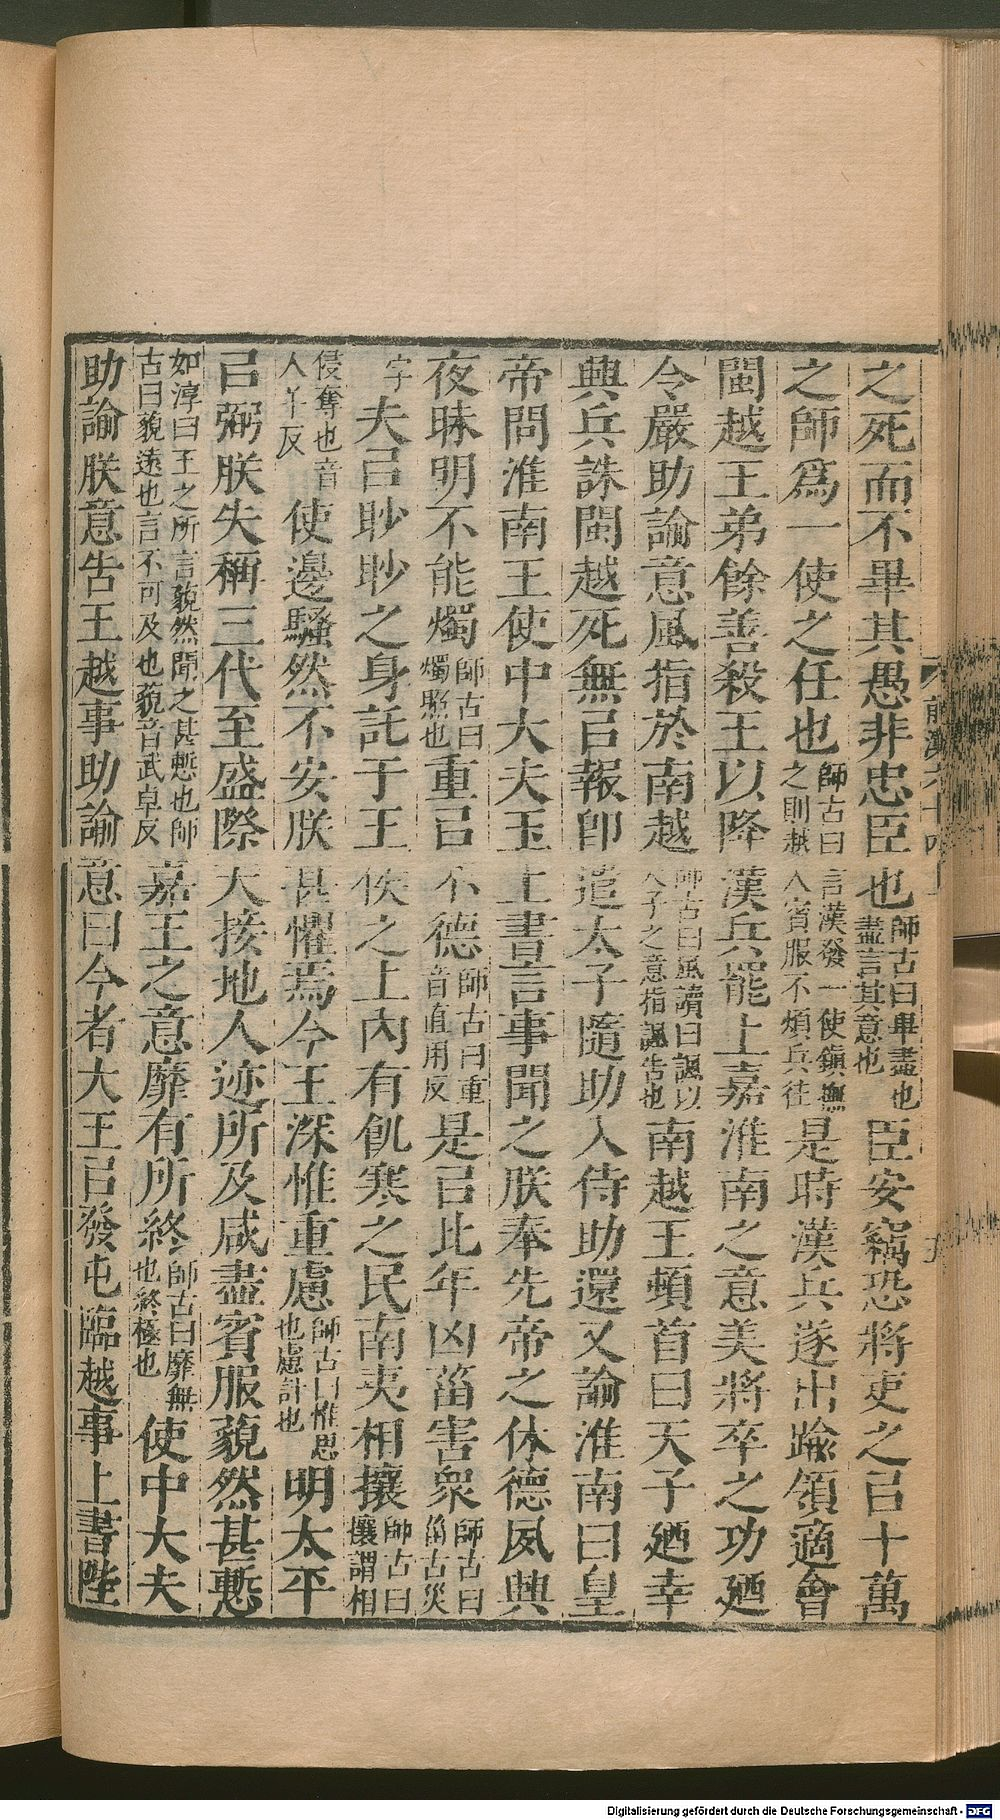 之死而不畢其愚非忠臣也師古曰畢盡也盡言其意也臣安竊恐將吏之㠯十萬
之師爲一使之任也師古曰言漢發一使鎮撫之則越人賓服不煩兵往是時漢兵遂出踰領適會
閩越王弟餘善殺王以降漢兵罷上嘉淮南之意美將卒之功廼
令嚴助諭意風指於南越師古曰風讀曰諷以天子之意指諷告也南越王頓首曰天子廼幸
興兵誅閩越死無㠯報卽遣太子隨助入侍助還又諭淮南曰皇
帝問淮南王使中大夫玉上書言事聞之朕奉先帝之休德夙興
夜昧明不能燭師古曰燭照也重㠯不德師古曰重音直用反是㠯比年凶菑害衆師古曰菑古災
字夫㠯眇眇之身託于王侯之上內有飢寒之民南夷相攘師古曰攘謂相
侵奪也音人羊反使邊騷然不安朕甚懼焉今王深惟重慮師古曰惟思也慮計也明太平
㠯弼朕失稱三代至盛際天接地人迹所及咸盡賓服藐然甚慙
如淳曰王之所言藐然聞之甚慙也師古曰藐遠也言不可及也藐音武卓反嘉王之意靡有所終師古曰靡無也終極也使中大夫
助諭朕意告王越事助諭意曰今者大王㠯發屯臨越事上書陛
前漢六十四上
Digitalisierung gefördert durch die Deutsche Forschungsgemeinschaft - DFG